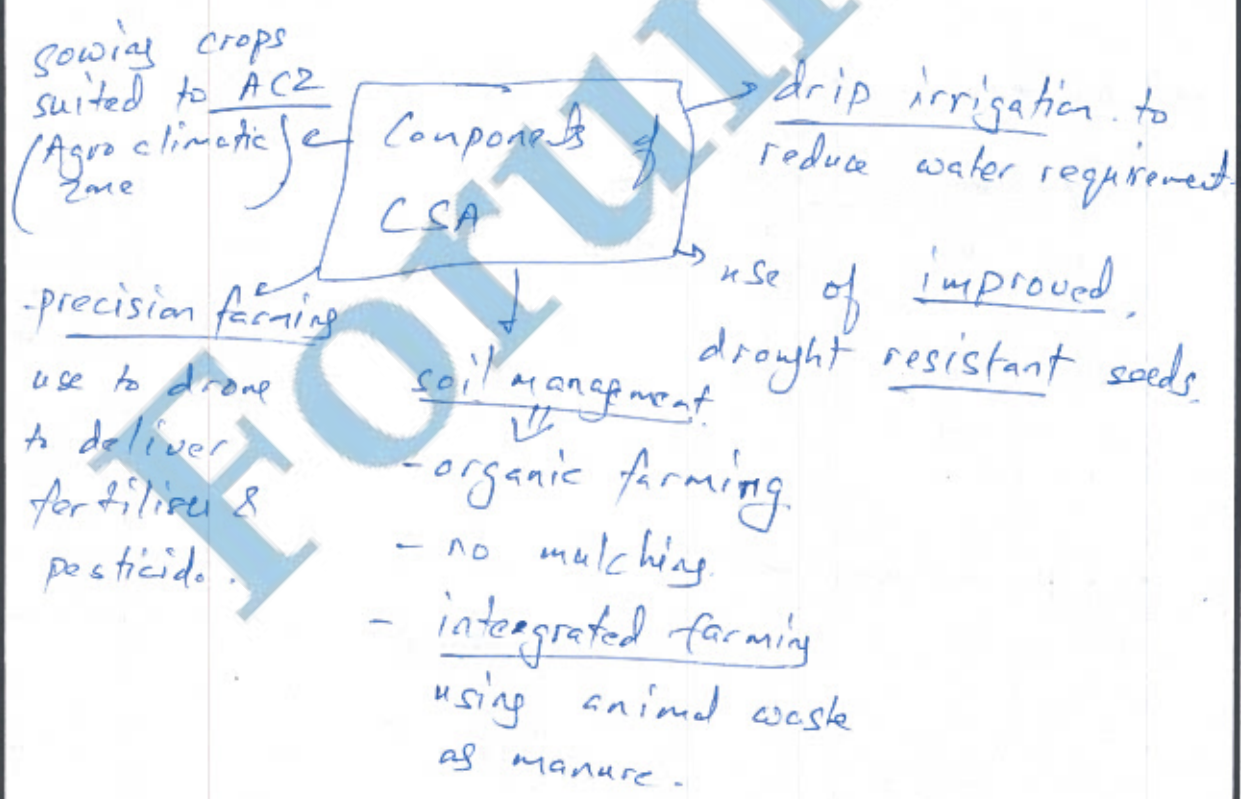 sowing crops
suited to ACZ
(Agro climatic
zone)
Components of
CSA
drip irrigation to
reduce water requirement
use of improved,
drought resistant seeds.
- precision farming
use to drone
to deliver
fertiliser &
pesticide.
soil managment.
- organic farming
- no mulching.
- intergrated farming
using animal waste
as manure.
Forum